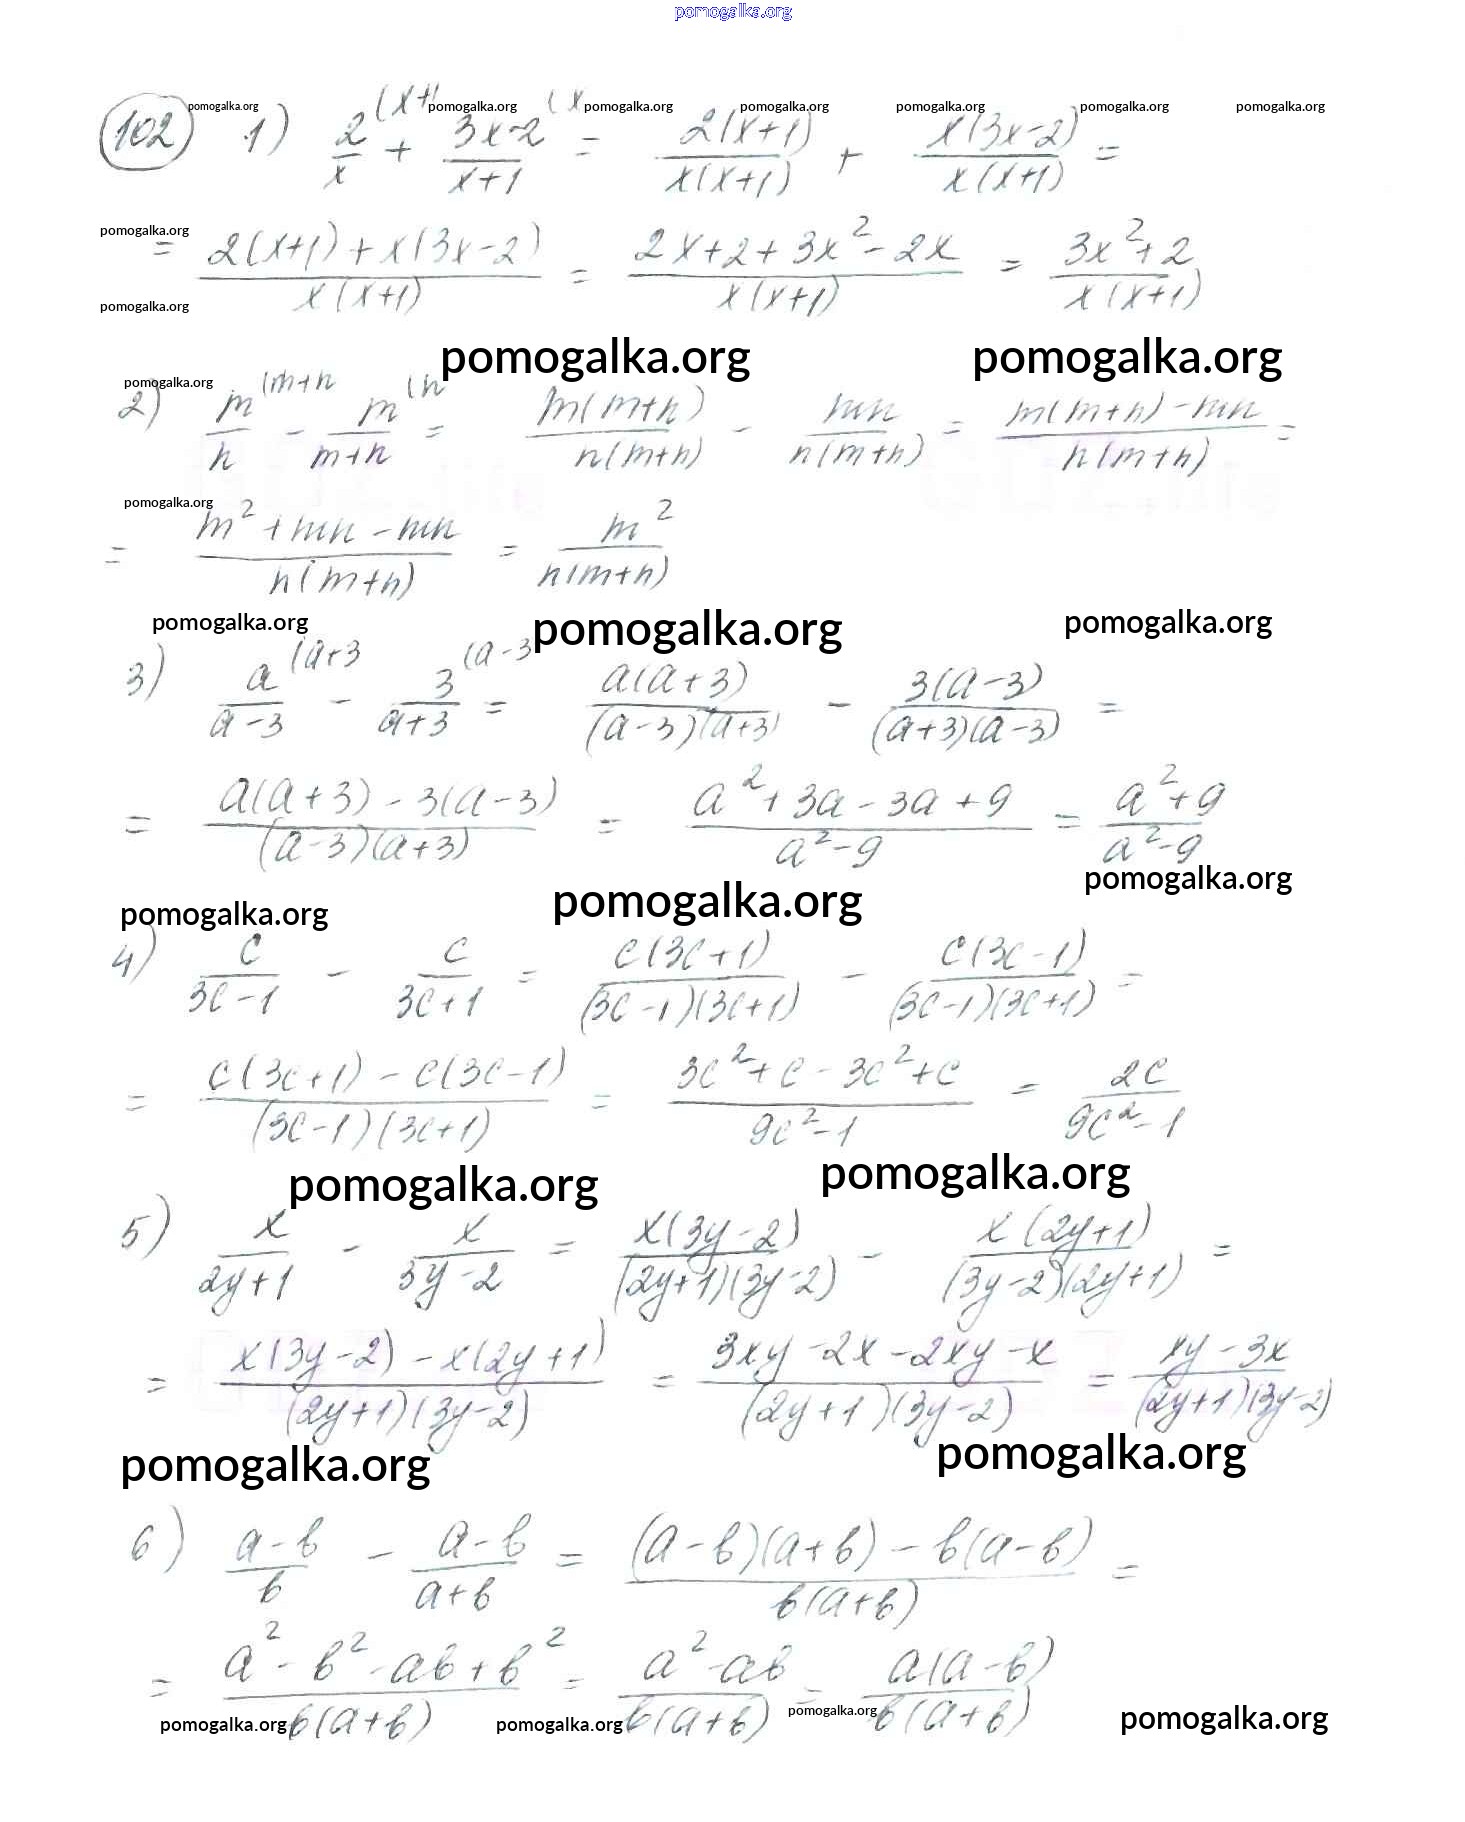 pomogalka.org
pomogalka.org pomogalka.org pomogalka.org pomogalka.org pomogalka.org pomogalka.org pomogalka.org
102 1) 2/x (x+1 + (3x-2)/(x+1) (x = 2(x+1)/(x(x+1)) + x(3x-2)/(x(x+1)) =
pomogalka.org
= (2(x+1)+x(3x-2))/(x(x+1)) = (2x+2+3x²-2x)/(x(x+1)) = (3x²+2)/(x(x+1))
pomogalka.org
pomogalka.org pomogalka.org
pomogalka.org
2) m/n (m+n - m/(m+n) (n = m(m+n)/(n(m+n)) - mn/(n(m+n)) = (m(m+n)-mn)/(n(m+n)) =
pomogalka.org
= (m²+mn-mn)/(n(m+n)) = m²/(n(m+n))
pomogalka.org pomogalka.org pomogalka.org
3) a/(a-3) (a+3 - 3/(a+3) (a-3 = a(a+3)/((a-3)(a+3)) - 3(a-3)/((a+3)(a-3)) =
= (a(a+3)-3(a-3))/((a-3)(a+3)) = (a²+3a-3a+9)/(a²-9) = (a²+9)/(a²-9)
pomogalka.org pomogalka.org pomogalka.org
4) c/(3c-1) - c/(3c+1) = c(3c+1)/((3c-1)(3c+1)) - c(3c-1)/((3c-1)(3c+1)) =
= (c(3c+1)-c(3c-1))/((3c-1)(3c+1)) = (3c²+c-3c²+c)/(9c²-1) = 2c/(9c²-1)
pomogalka.org pomogalka.org
5) x/(2y+1) - x/(3y-2) = x(3y-2)/((2y+1)(3y-2)) - x(2y+1)/((3y-2)(2y+1)) =
= (x(3y-2)-x(2y+1))/((2y+1)(3y-2)) = (3xy-2x-2xy-x)/((2y+1)(3y-2)) = (xy-3x)/((2y+1)(3y-2))
pomogalka.org pomogalka.org
6) (a-b)/b - (a-b)/(a+b) = ((a-b)(a+b)-b(a-b))/(b(a+b)) =
= (a²-b²-ab+b²)/(b(a+b)) = (a²-ab)/(b(a+b)) = a(a-b)/(b(a+b))
pomogalka.org pomogalka.org pomogalka.org pomogalka.org